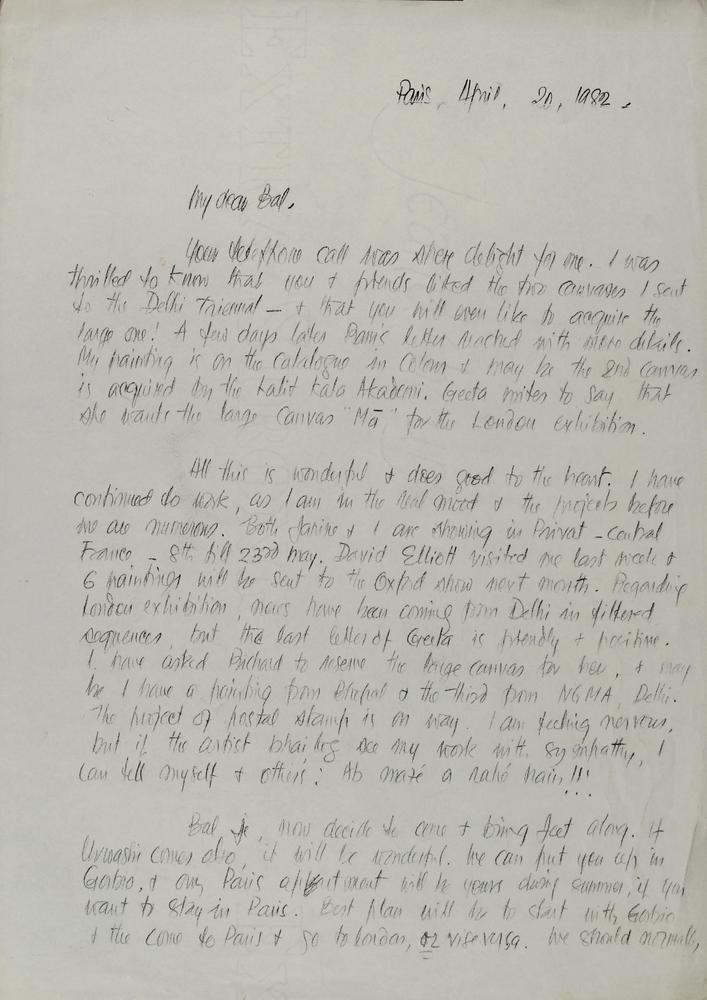 Paris, April, 20, 1982.
My dear Bal,
Your telephone call was shere delight for me. I was
thrilled to know that you & friends liked the two canvases I sent
to the Delhi Triennal — & that you will even like to acquire the
large one! A few days later letter reached with more details.
My painting is on the catalogue in colour & may be the 2nd canvas
is acquired by the Lalit Kala Akademi. Geeta writes to say that
she wants the large canvas "Mā" for the London exhibition.
All this is wonderful & does good to the heart. I have
continued to work, as I am in the real mood & the projects before
me are numerous. Both Janine & I are showing in Privat - central
France - 8th till 23rd May. David Elliott visited me last week &
6 paintings will be sent to the Oxford show next month. Regarding
London exhibition, news have been coming from Delhi in filtered
sequences, but the last letter of Geeta is friendly & positive.
I have asked Richard to reserve the large canvas for her, & may
be I have a painting from Bhopal & the third from NGMA, Delhi.
The project of postal stamp is on way. I am feeling nervous,
but if the artist bhai log see my work with sympathy, I
can tell myself & others: Ab mazé a rahé hain!!! ...
Bal je, now decide to come & bring Jeet along. If
Urwashi comes also, it will be wonderful. We can put you up in
Gorbio, & our Paris appartment will be yours during summer, if you
want to stay in Paris. Best plan will be to start with Gorbio
& the come to Paris & go to London, or vise versa. We should normally,